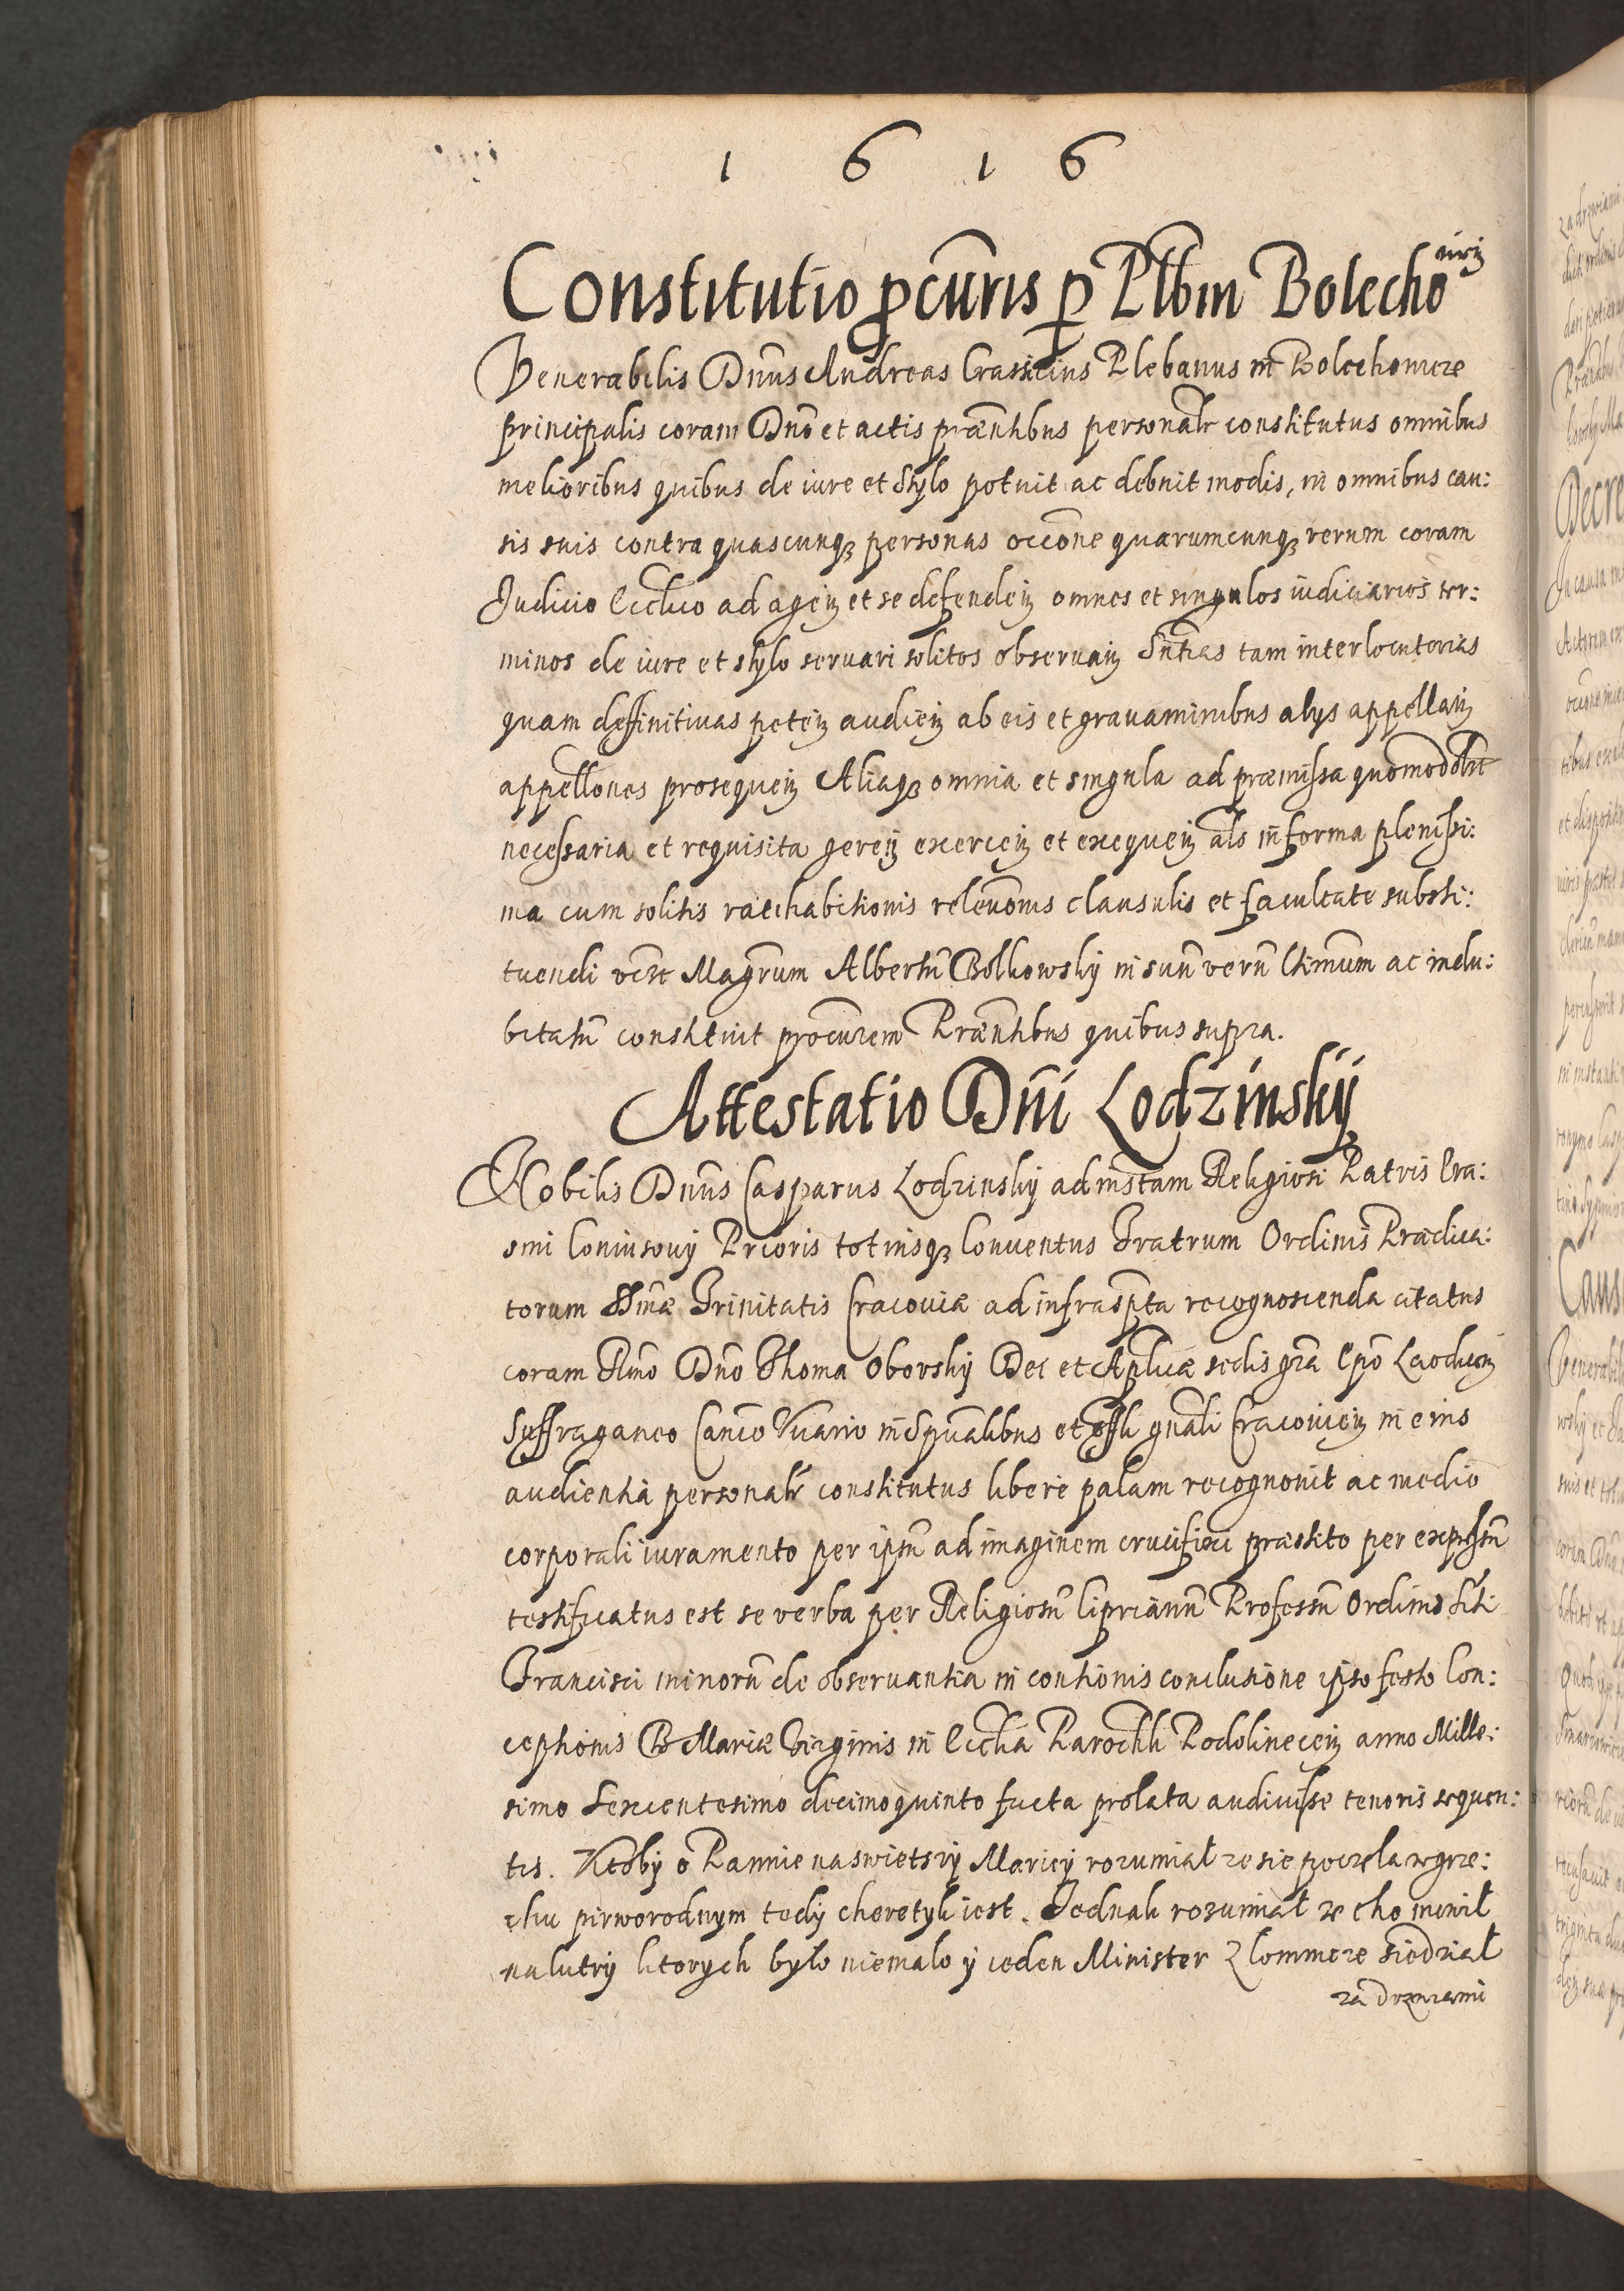 1 6 1 6
Constitutio p̱curis p̱ Plbm Bolechovicz
Venerabilis Dnus Andreas Crassicius Plebanus in Bolechowicze
principalis coram Dno et actis præntibus personalr constitutus omnibus
melioribus quibus de iure et stylo potuit ac debuit modis, in omnibus cau:
sis suis contra quascunqȝ personas occone quarumcunqȝ rerum coram
Iudicio Ecclico ad ageñ et se defendeñ omnes et singulos iudiciarios ter:
minos de iure et stylo servari solitos observañ Sntias tam interlocutorias
quam deffinitivas peteñ audieñ ab eis et gravaminibus alys appellañ
appellones prosequeñ Aliaqȝ omnia et singula ad præmissa quomodolbt
necessaria et requisita gereñ exerceñ et exequeñ als in forma plenissi:
ma cum solitis ratihabitionis relevonis clausulis et facultate substi:
tuendi Magrum Albertũ Bolkowsky in suũ verũ Ltimum ac indu:
bitatũ constituit procurem Præntibus quibus supra.
Attestatio Dni Lodzinsky
Nobilis Dnus Casparus Lodzinsky ad instam Religiosi Patris Era:
smi Coniusovy Prioris totiusqȝ Conventus Fratrum Ordinis Prædica:
torum SSmæ Trinitatis Cracoviæ ad infrascpta recognoscenda citatus
coram Rmo Dno Thoma Oborsky Dei et Aplicæ sedis gra Epo Laodiceñ
Suffraganeo Canco Vicario in Spualibus et Offli gnali Cracovieñ in eius
audientia personalr constitutus libere palam recognovit ac medio
corporali iuramento per ipsũ ad imaginem crucifixi præstito per expssũ
testificatus est se verba per Religiosũ Ciprianũ Professũ Ordinis Sti
Francisci minorũ de observantia in contionis conclusione ipso festo Con:
ceptionis B Mariæ Virginis in Ecclia Parochli Podolineceñ anno Mille:
simo Sexcentesimo decimoquinto facta prolata audivisse tenoris sequen:
tis. Ktoby o Pannie naswietszy Mariey rozumiał ze sie poczela w grze:
chu pirworodnym tedy cheretyk iest. Jednak rozumiał ze tho mowił
na lutry ktorych było niemalo y ieden Minister z kommcze siedział
za drzwiami